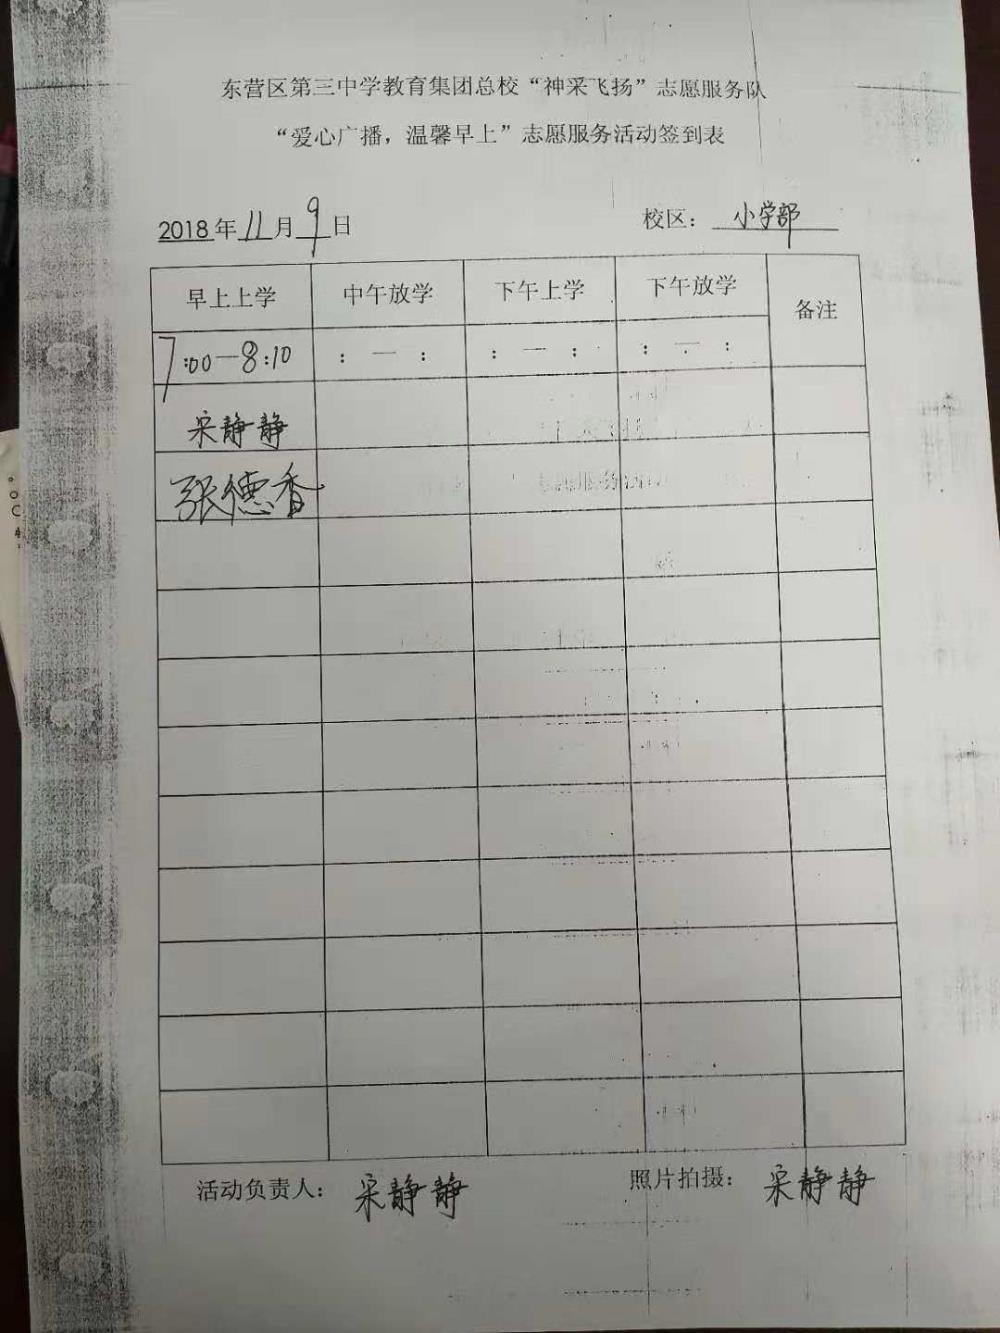 东营区第三中学教育集团总校“神采飞扬”志愿服务队
“爱心广播，温馨早上”志愿服务活动签到表
2018年11月9日 校区：小学部
早上上学 中午放学 下午上学 下午放学 备注
7:00—8:10 : — : : — : : — :
宋静静
张德香
活动负责人：宋静静 照片拍摄：宋静静